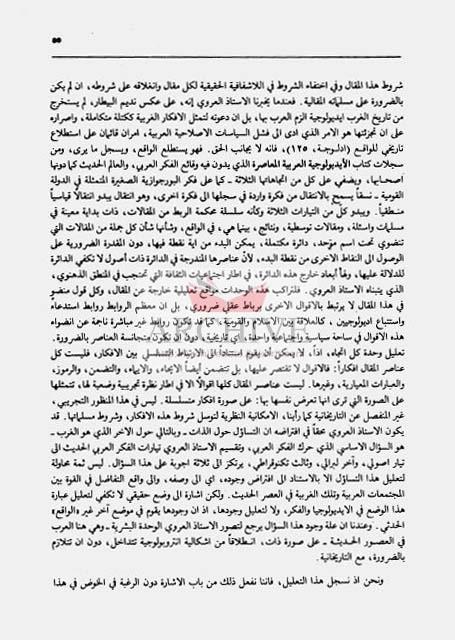 ٥٥
شروط هذا المقال وفي اختفاء الشروط في اللاشفافية الحقيقية لكل مقال وانغلاقه على شروطه، ان لم يكن
بالضرورة على مسلماته المقالية. فعندما يخبرنا الاستاذ العروي إنه، على عكس نديم البيطار، لم يستخرج
من تاريخ الغرب ايديولوجية الزم العرب بها، بل ان دعوته لتمثل الافكار الغربية ككتلة متكاملة، واصراره
على ان تجزئتها هو الامر الذي ادى الى فشل السياسات الاصلاحية العربية، امران قائمان على استطلاع
تاريخي للواقع (ادلوجة، ١٢٥)، فانه لا يجانب الحق. فهو يستطلع الواقع، ويسجل ما يرى، ومن
سجلات كتاب الأيديولوجية العربية المعاصرة الذي يدون فيه وقائع الفكر العربي، والعالم الحديث كما دونها
أصحابها، ويضفي على كل من اتجاهاتها الثلاثة ـ كما على فكر البورجوازية الصغيرة المتمثلة في الدولة
القومية ـ نسقاً يسمح بالانتقال من فكرة واردة في سجلها الى فكرة اخرى، وهو انتقال يبدو انتقالاً قياسياً
منطقياً. ويبدو كل من التيارات الثلاثة وكأنه سلسلة محكمة الربط من المقالات، ذات بداية معينة في
مسلمات واسئلة، ومقالات توسطية، ونتائج، بينما هي، في الواقع، وشأنها شأن كل جملة من المقالات التي
تنضوي تحت اسم موحد، دائرة مكتملة، يمكن البدء من اية نقطة فيها، دون المقدرة الضرورية على
الوصول الى النقاط الاخرى من نقطة البدء، لأن عناصرها المندرجة في الدائرة ذات أصول لا تكفي الدائرة
للدلالة عليها، ولها أبعاد خارج هذه الدائرة، في اطار اجتماعيات الثقافة التي تحتجب في المنطق الذهنوي،
الذي يتبناه الاستاذ العروي. فلتراكب هذه الوحدات مواقع تعليلية خارجة عن المقال، وكل قول منضو
في هذا المقال لا يرتبط بالاقوال الاخرى برباط عقلي ضروري، بل ان معظم الروابط روابط استدعاء
واستتباع ايديولوجيين، كالعلاقة بين الاسلام والقومية، كما قد تكون روابط غير مباشرة ناجة عن انضواء
هذه الاقوال في ساحة سياسية واجتماعية واحدة، أي تاريخية، دون ان تكون متجانسة العناصر بالضرورة.
تعليل وحدة كل اتجاه، اذاً، لا يمكن أن يقوم استناداً الى الارتباط التسلسلي بين الافكار، فليست كل
عناصر المقال افكاراً: فالاقوال لا تقتصر عليها، بل تتضمن أيضاً الايحاء، والايماء، والتضمن، والرموز،
والعبارات المعيارية، وغيرها. ليست عناصر المقال كلها اقوالاً الا في اطار نظرة تجريبية وضعية لها، تتمثلها
على الصورة التي ترى انها تعرض نفسها بها: على صورة افكار متسلسلة. ليس في هذا المنظور التجريبي،
غير المنفصل عن التاريخانية كما رأينا، الامكانية النظرية لتوسل شروط هذه الافكار، وشروط مسلماتها. قد
يكون الاستاذ العروي محقاً في افتراضه ان التساؤل حول الذات ـ وبالتالي حول الاخر الذي هو الغرب ـ
هو السؤال الاساسي الذي حرك الفكر العربي، وتقسيم الاستاذ العروي تيارات الفكر العربي الحديث الى
تيار اصولي، وآخر ليبرالي، وثالث تكنوقراطي، يرتكز الى ثلاثة اجوبة على هذا السؤال. ليس ثمة محاولة
لتعليل هذا التساؤل الا بالاستناد الى افتراض وجوده، اي الى وصفه، والى واقع التفاضل في القوة بين
المجتمعات العربية وتلك الغربية في العصر الحديث. ولكن اشارة الى وضع حقيقي لا تكفي لتعليل عبارة
هذا الوضع في الايديولوجيا والفكر، ولا لتعليل وجودها، اذ ان وجودها يقوم في موضع آخر غير «الواقع»
الحدثي. وعندنا ان علة وجود هذا السؤال يرجع لتصور الاستاذ العروي الوحدة البشرية ـ وهي هنا العرب
في العصور الحديثة ـ على صورة ذات، انطلاقاً من اشكالية انثروبولوجية تتداخل، دون ان تتلازم
بالضرورة، مع التاريخانية.
ونحن اذ نسجل هذا التعليل، فاننا نفعل ذلك من باب الاشارة دون الرغبة في الخوض في هذا
ARCHIVE